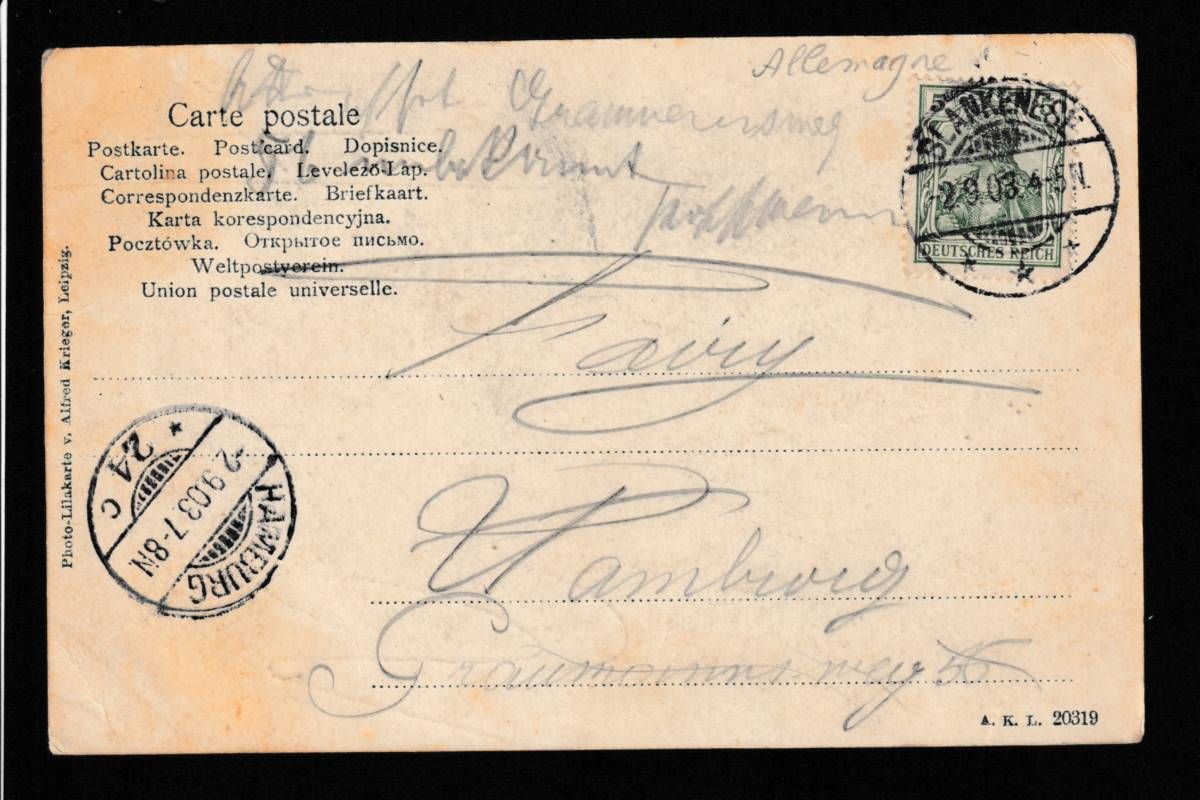 Allemagne
Carte postale
Postkarte. Postcard. Dopisnice.
Cartolina postale. Levelező-Lap.
Correspondenzkarte. Briefkaart.
Karta korespondencyjna.
Pocztówka. Открытое письмо.
Weltpostverein.
Union postale universelle.
Graumannsweg
76 unbekannt
BLANKENESE
-2.9.03.4-5N.
DEUTSCHES REICH
Photo-Lilakarte v. Alfred Krieger, Leipzig.
HAMBURG
-2.9.03.7-8N
* 24 C
Hamburg
Graumannsweg
A. K. L. 20319